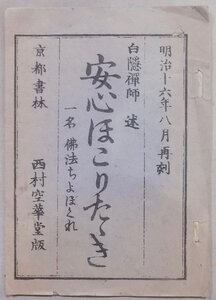 明治十六年八月再刻
白隠禅師 述
安心ほこりたゝき
一名 佛法ちよぼくれ
京都書林 西村空華堂版